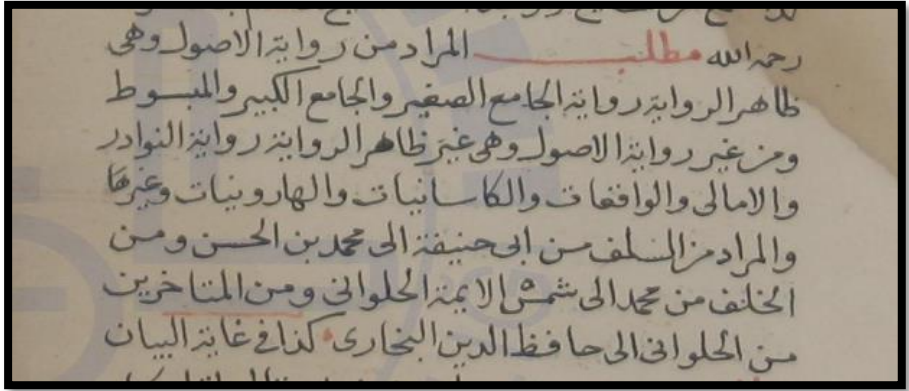 رحمه الله مطلب المراد من رواية الاصول وهى
ظاهر الرواية رواية الجامع الصغير والجامع الكبير والمبسوط
ومن غير رواية الاصول وهى غير ظاهر الرواية رواية النوادر
والامالى والواقعات والكاسانيات والهارونيات وغيرها
والمراد من السلف من ابى حنيفة الى محمد بن الحسن ومن
الخلف من محمد الى شمس الايمة الحلوانى ومن المتاخرين
من الحلوانى الى حافظ الدين البخارى كذا فى غاية البيان